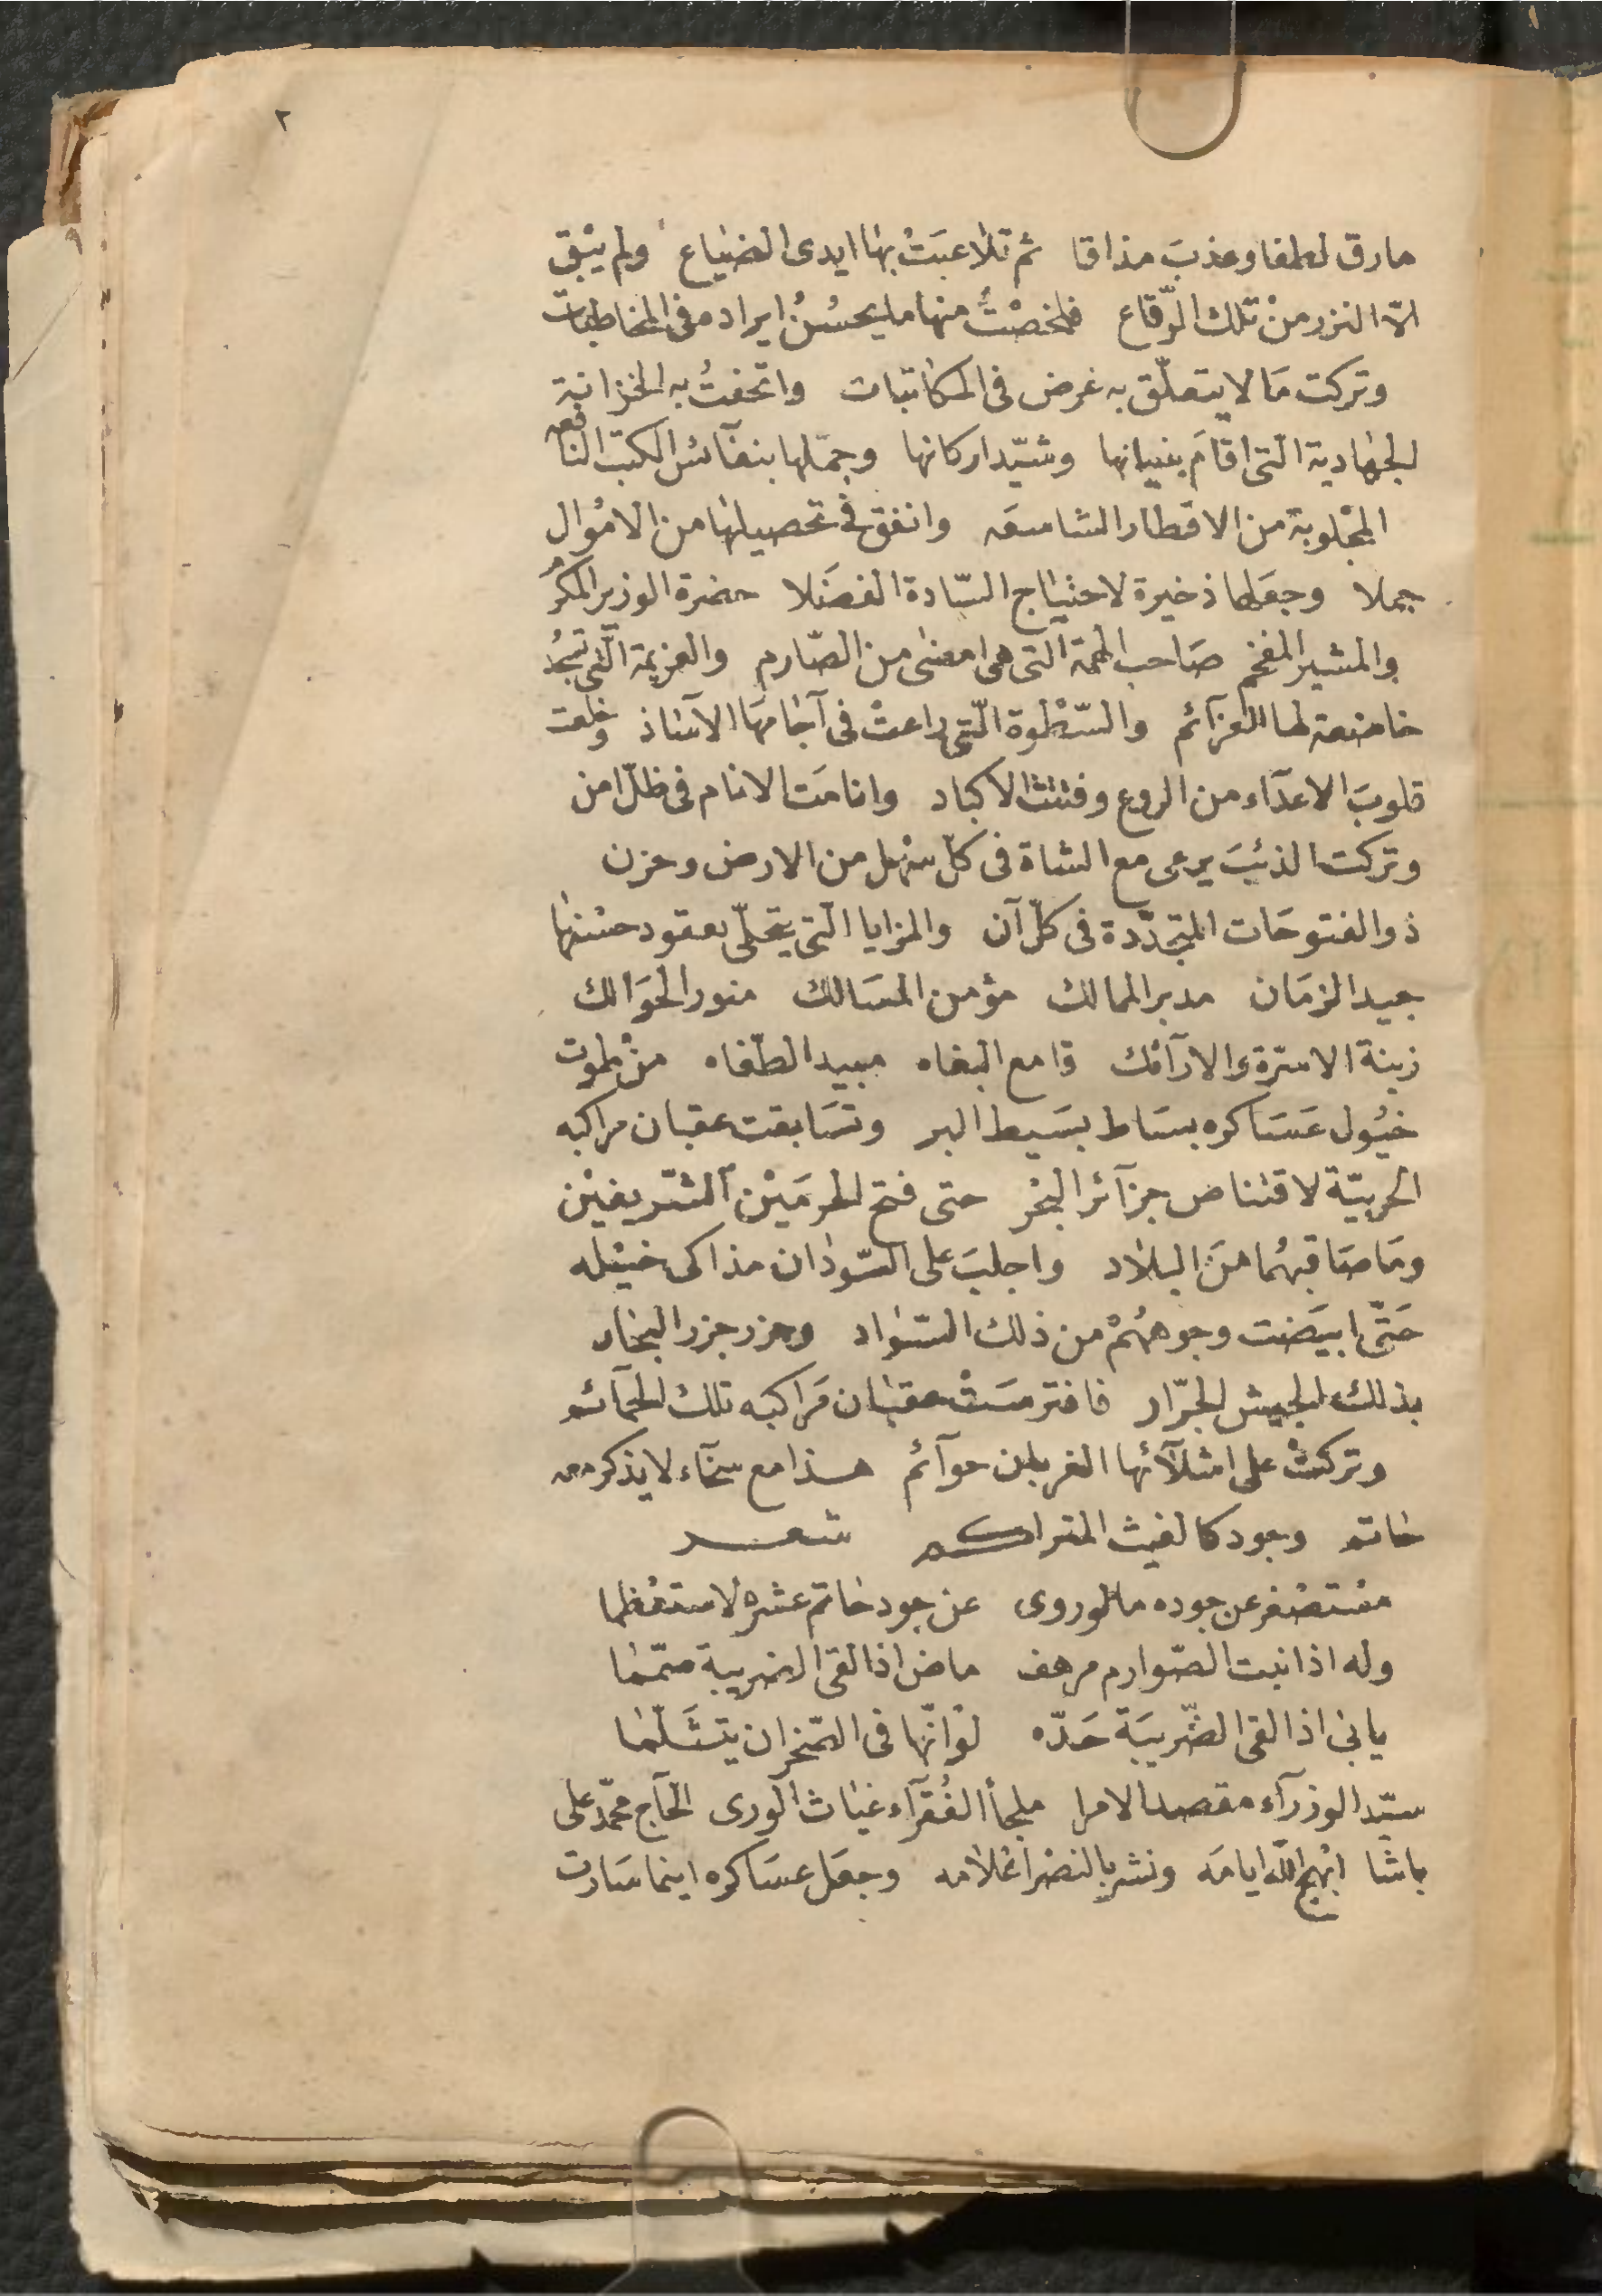 ٢
مارق لطفا وعذبَ مذاقا ثم تلاعبَتْ بها ايدى الضياع ولم يبْق
الّا النزر منْ تلك الرّقاع فلخصْتُ منها ما يحسُنُ ايراده فى المخاطبات
وتركت مَا لا يتعلّق به غرض فى المكاتبات واتحفتُ به الخزانة
الجهادية التى اقامَ بنيانها وشيّد اركانها وجمّلها بنفآئس الكتب النافعه
المجْلوبة من الاقطار الشاسعَه وانفق فى تحصيلها من الامْوال
جملا وجعَلها ذخيرة لاحتياج السّادة الفضَلا حضرة الوزير المكرم
والمشير المفخم صَاحب الهمة التى هى امضىٰ من الصّارم والعزيمة الّتى تسجُد
خاضعة لها العزآئم والسّطْوة الّتى راعتْ فى آجامهَا الآساد وخلعت
قلوبَ الاعدآء من الروع وفتتت الاكباد وانامَت الانام فى ظلّ امن
وتركت الذئبَ يرعى مع الشاة فى كلّ سهْل من الارض وحزن
ذو الفتوحَات المتجدّدة فى كلّ آن والمزايا الّتى يتحلّى بعقود حسْنها
جيد الزمَان مدبر الممالك مؤمن المسَالك منور الحوَالك
زينة الاسرّة والارآئك قامع البغاه مبيد الطّغاه منْ طوت
خيُول عَسَاكره بسَاط بسَيط البر وتسَابقت عقبان مراكبه
الحربيّة لاقتناص جزآئر البحْر حتى فتح الحرمَيْن الشّريفيْن
ومَا صَاقبهُما منَ البلاد واجلبَ على السّودٰان مذاكى خيْله
حَتّى ابيَضت وجوههُمْ من ذلك السّواد وجزر جزر البحار
بذلك الجيش الجرّار فافترسَتْ عقبان مَراكبه تلك الحمآئم
وتركتْ على اشْلآئها الغربان حوآئم هذا مع سخآء لا يذكر معه
حاتم وجود كالغيث المتراكم شعر
مسْتصْغر عن جوده ما لو روى عن جود حاتم عشرهُ لاستعْظما
وله اذا نبت الصّوارم مرهف ماض اذا لقى الضريبة صمّما
يابى اذا لقى الضّريبَة حَدّه لوْ انّها فى الصّخر ان يتثَلّما
سيّد الوزرآء مقصد الامرا ملجأ الفُقرآء غياث الورى الحآج محمّد على
باشا ابْهج اللّه ايامَه ونشر بالنصْر اعْلامه وجعَل عسَاكره اينما سَارت